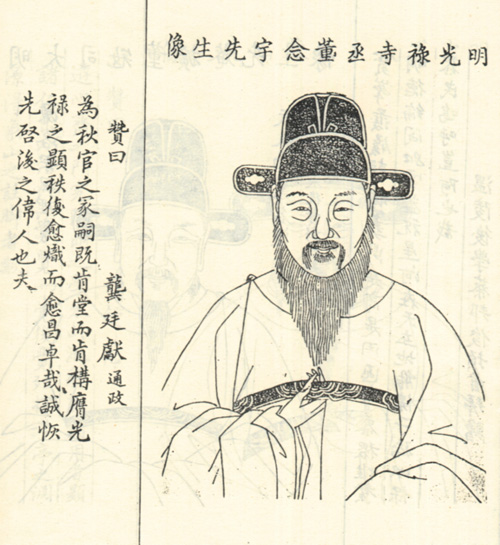 明光祿寺丞董念宇先生像
贊曰 龔廷獻 通政
為秋官之冢嗣既肯堂而肯構膺光
祿之顯秩復愈熾而愈昌卓哉誠恢
先啓後之偉人也夫